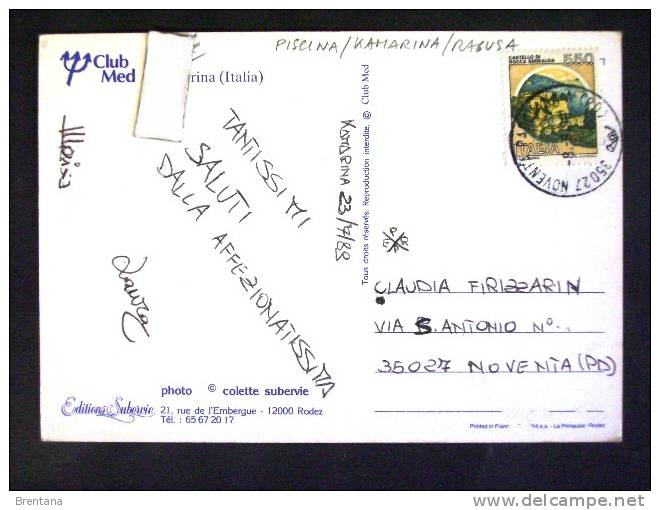 PISCINA/KAMARINA/RAGUSA
Club
Med
(Italia)
TANTISSIMI
SALUTI
DALLA AFFEZIONATISSIMA
Laura
KAMARINA 23/7/89
Tous droits réservés. Reproduction interdite. © Club Med
CASTELLO DI
ROCCA SINIBALDA
550
ITALIA
35027 NOVENTA
(PD)
CLAUDIA FIRIZZARIN
VIA S. ANTONIO N°..
35027 NOVENTA (PD)
photo © colette subervie
Editions Subervie
21, rue de l'Embergue - 12000 Rodez
Tél. : 65 67 20 17
Printed in Franc
s.a. - La Primaube Rodez
Brentana
delcampe.net